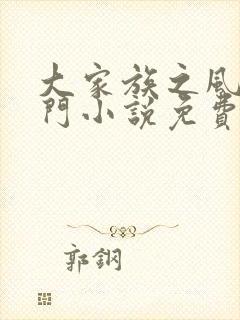 大家族之風
門小說免費
郭鋼